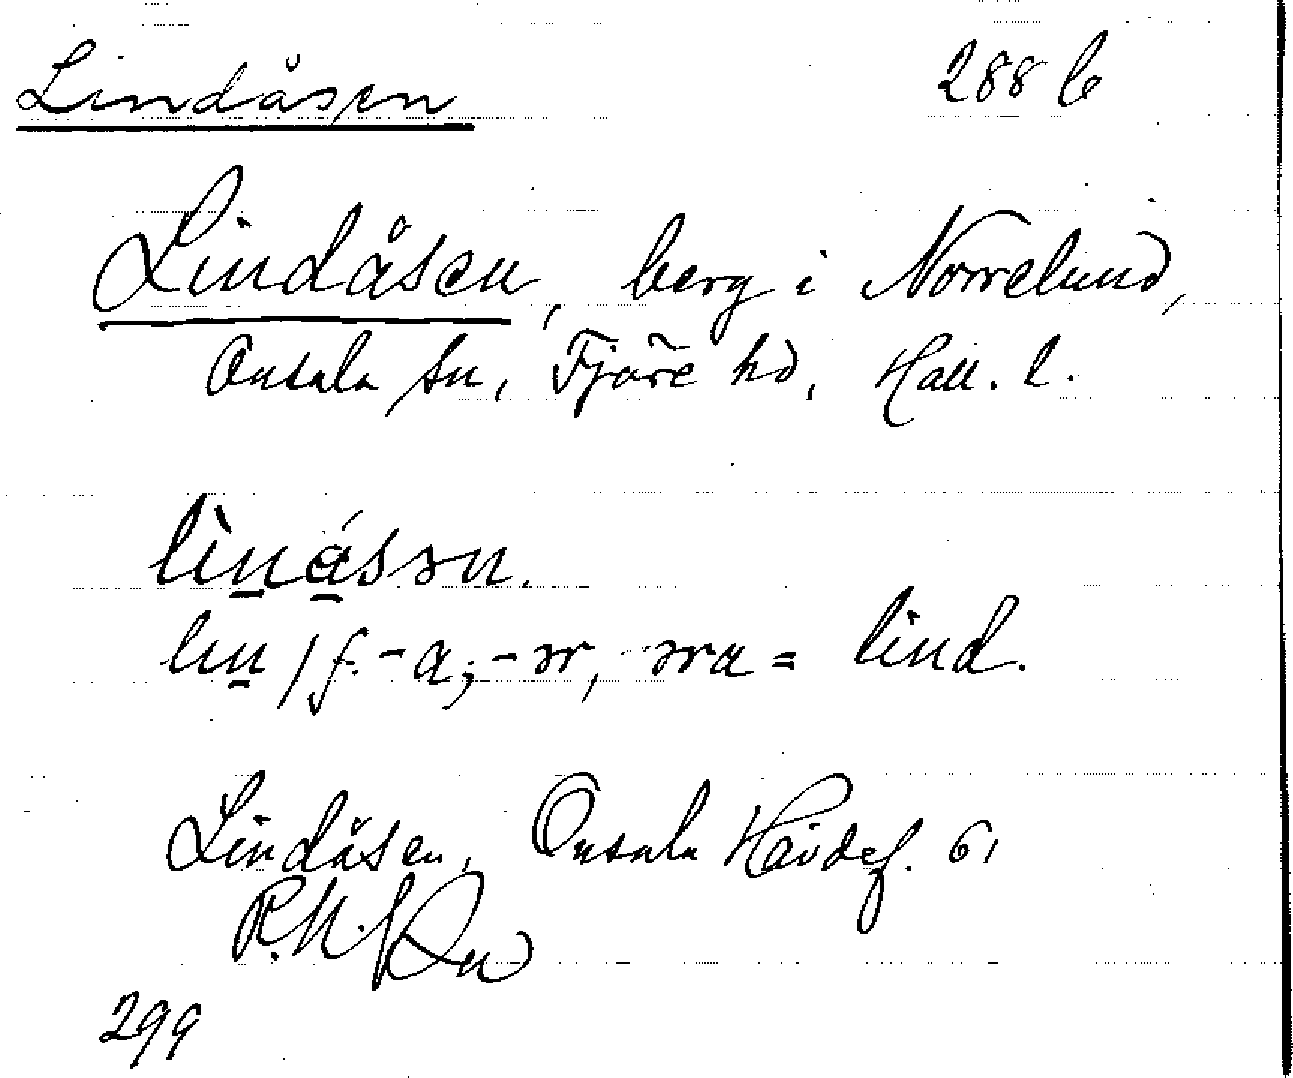 Lindåsen 288 b
Lindåsen, berg i Norrelund,
Onsala sn, Fjäre hd, Hall. l.
lìnásən.
lin / f. -a; -ər, əra = lind.
Lindåsen, Onsala 61
299